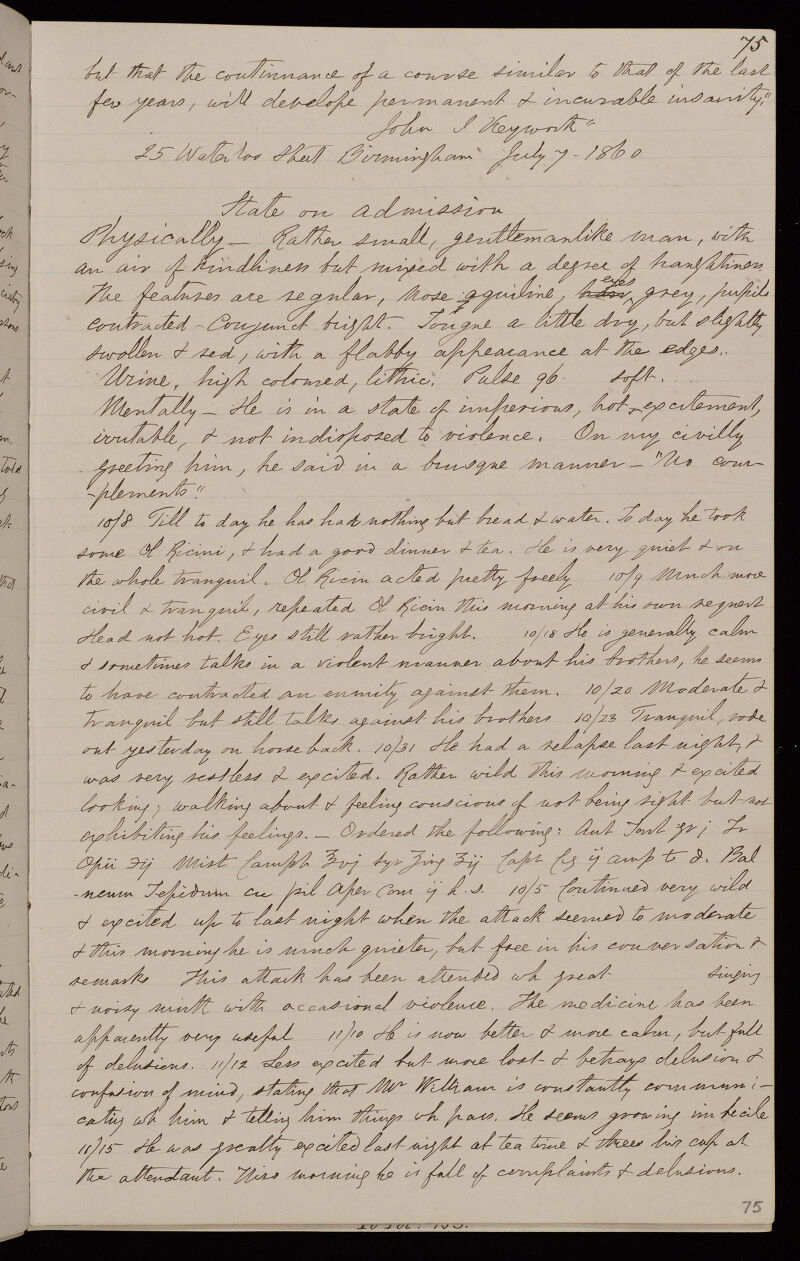 75
but that the continuance of a course similar to that of the last
few years, will develope permanent & incurable insanity."
John I Keyworth"
25 Waterloo Street Birmingham July 7 - 1860
State on admission
Physically — Rather small, gentlemanlike man, with
an air of kindliness but mixed with a degree of haughtiness
The features are regular, nose aquiline, hair eyes, grey, pupils
contracted - Conjunct bright. Tongue a little dry, but slightly
swollen & red, with a flabby appearance at the edges.
Urine, high coloured, lithic. Pulse 96 soft.
Mentally — He is in a state of imperious, hot, excitement,
irritable, & not indisposed to violence. On my civilly
greeting him, he said in a brusque manner — "No com-
-plements"
10/8 Till to day he has had nothing but bread & water. To day he took
some Ol Ricini, & had a good dinner & tea. He is very quiet & on
the whole tranquil. Ol Ricin acted pretty freely 10/9 Much more
civil & tranquil, repeated Ol Ricin this morning at his own request
Head not hot. Eyes still rather bright. 10/18 He is generally calm
& sometimes talks in a violent manner about his brothers, he seems
to have contracted an enmity against them. 10/20 Moderate &
tranquil but still talks against his brothers 10/23 Tranquil, rode
out yesterday on horseback. 10/31 He had a relapse last night, &
was very restless & excited. Rather wild this morning & excited
looking, walking about & feeling conscious of not being right but not
exhibiting his feelings. — Ordered the following: Ant Tart gr j Tr
Opii ʒij Mist Camph ℥vj Syr Zing ʒij Capt Cg ij amp t d. Bal
-neum Tepidum cu pil Aper Com ij h.s. 10/5 Continued very wild
& excited up to last night when the attack seemed to moderate
& this morning he is much quieter, but free in his conversation &
remarks This attack has been attended wh great singing
& noisy mirth with occasional violence. The medicine has been
apparently very useful 11/10 He is now better & more calm, but full
of delusions. 11/12 Less excited but more lost & betrays delusion &
confusion of mind, stating that Mr William is constantly communi-
cating wh him & telling him things wh pass. He seems growing imbecile
11/15 He was greatly excited last night at tea time & threw his cup at
the attendant. This morning he is full of complaints & delusions.
75